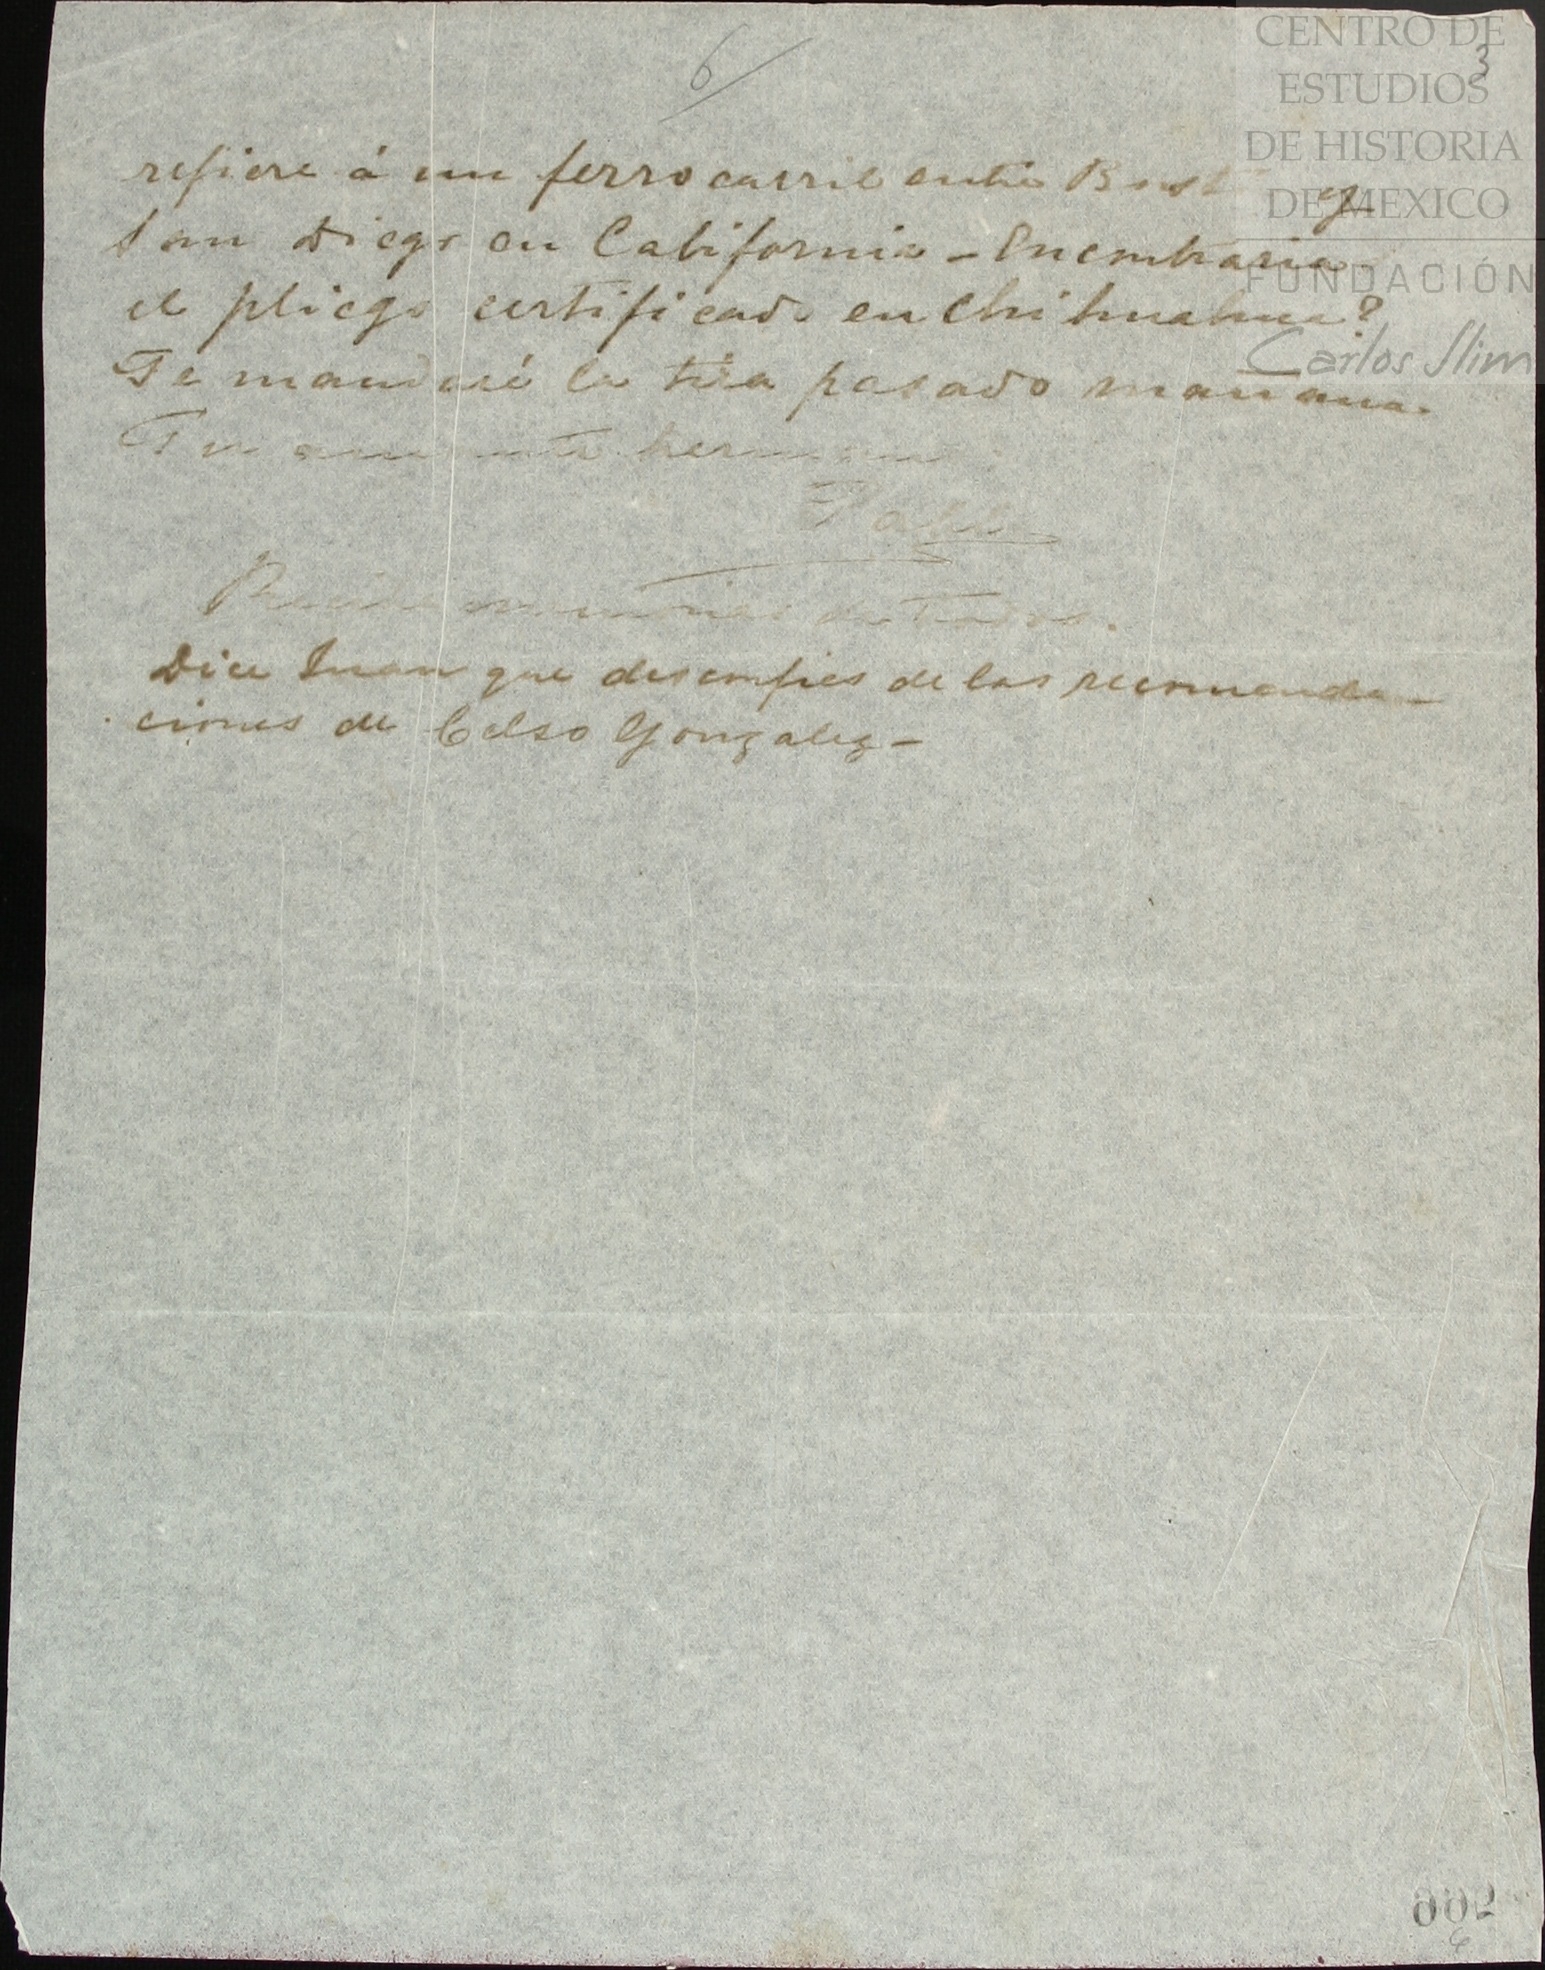 6/
3
CENTRO DE
ESTUDIOS
DE HISTORIA
DE MEXICO
FUNDACIÓN
Carlos Slim
refiere á un ferrocarril entre y
San Diego en California – Encontraria
el pliego certificado en Chihuahua?
Te mandaré la tira pasado mañana.
Tu amante hermano
Pablo
Recibe de todos.
Dice Juan que desconfies de las recomenda
ciones de Celso Gonzalez –
002
6